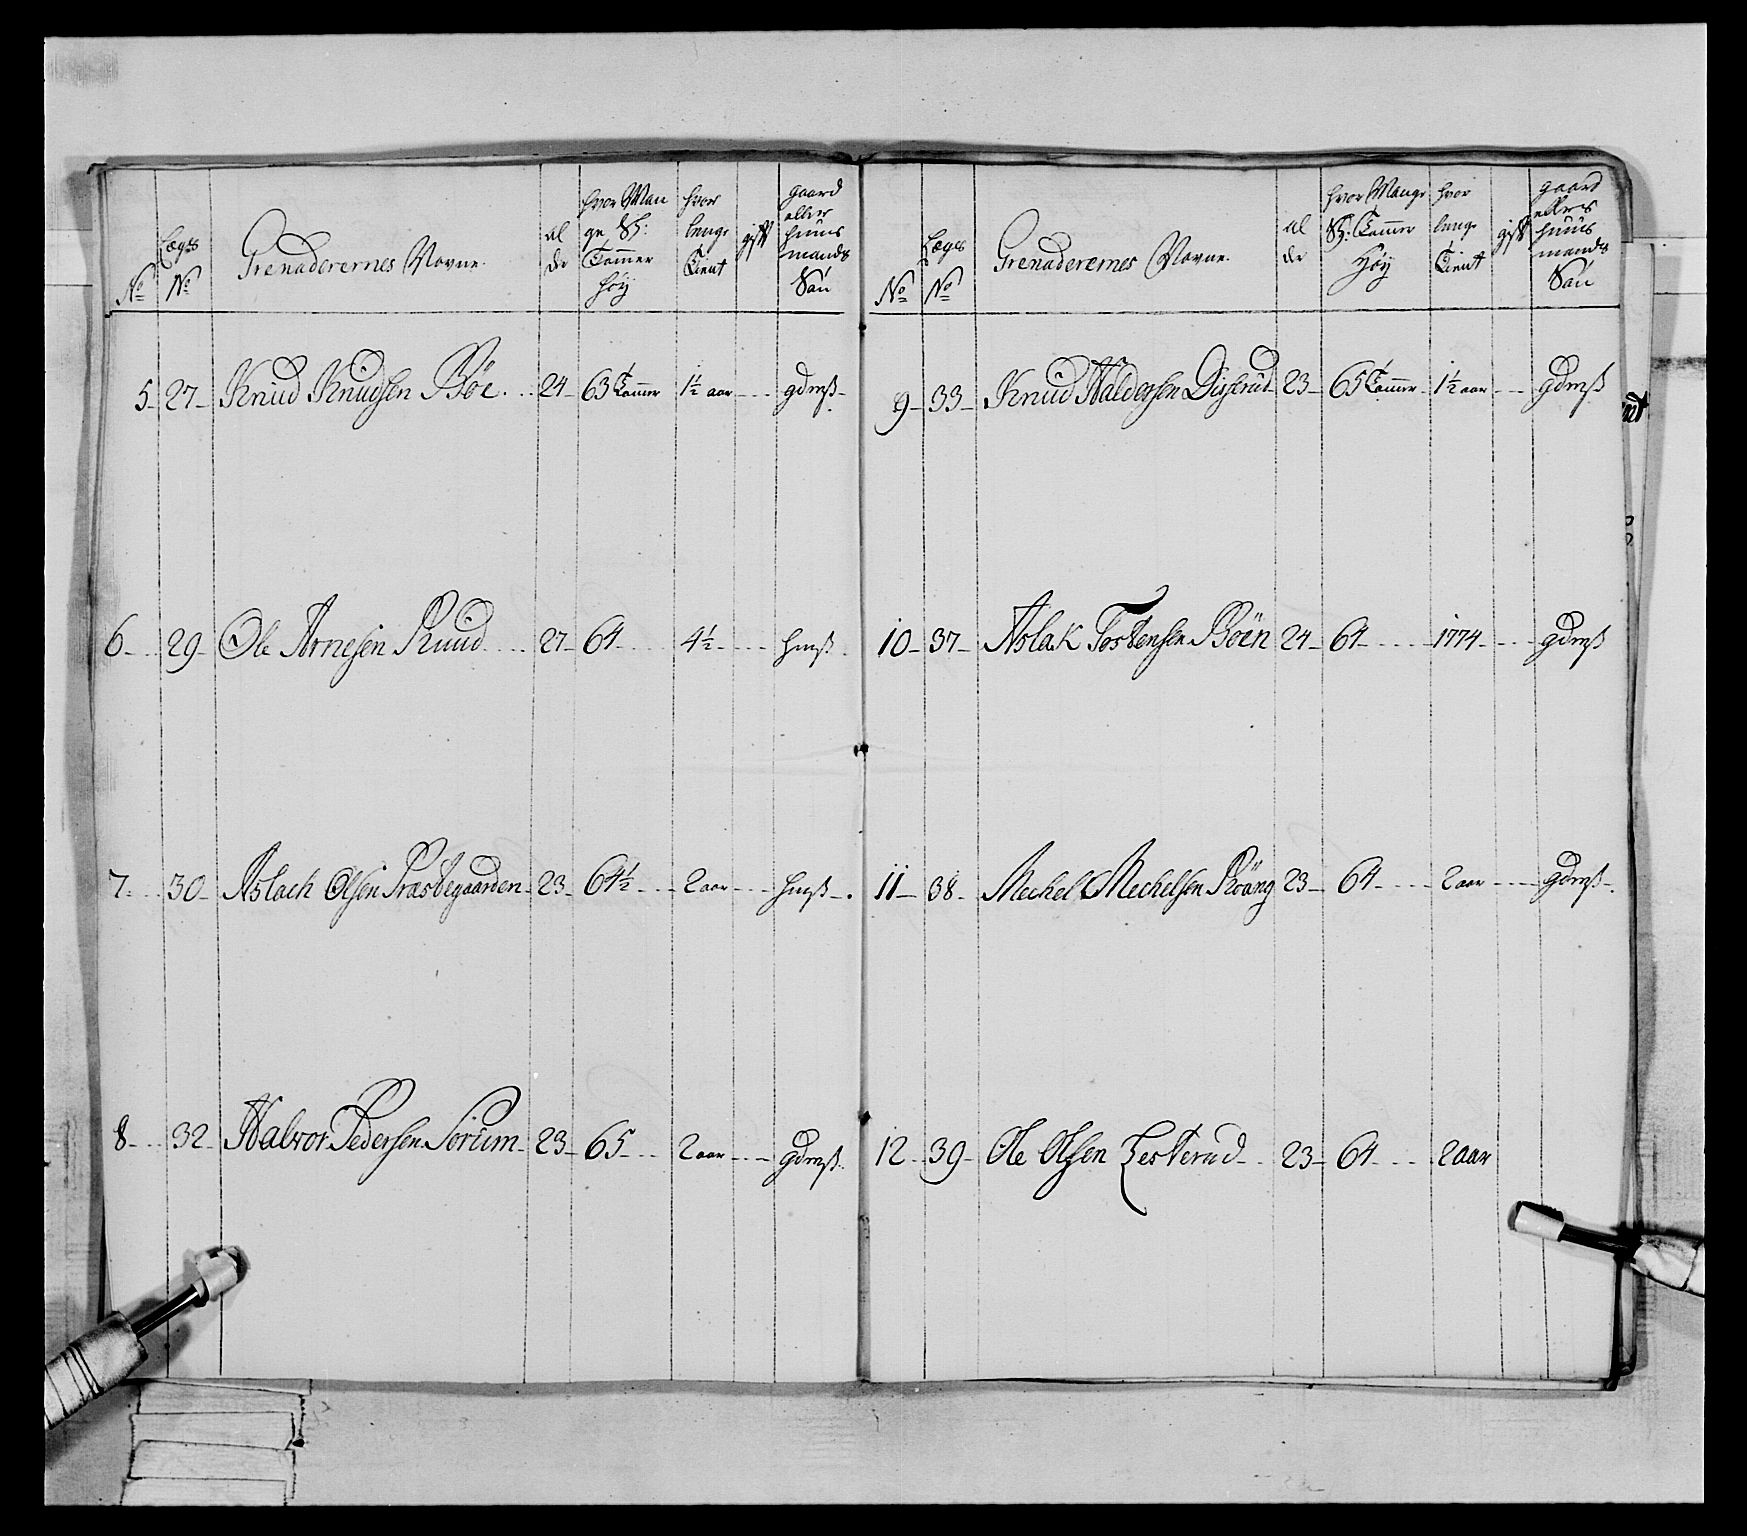 No Lægs No Grenaderernes Navne. al der hvor Man ge S: Tomer høy hvor lenge tient gift gaard eller huus mands Søn
5 27 Knud Knudsen Böe 24 63 Tomer 1½ aar gdmß
6 29 Ole Arnesen Ruud 27 64 4½ hmß
7 30 Aslach Olsen Præstegaarden 23 64½ 2 aar hmß
8 32 Halvor Pedersen Sorum 23 65 2 aar gdmß
No Lægs No Grenaderernes Navne. al der hvor Mange S: Tomer Høy hvor lenge tient gift gaard eller huus mands Søn
9 33 Knud Haldorsen 23 65 Tomer 1½ aar gdmß
10 37 Aslak Tostensen Böen 24 64 1774 gdmß
11 38 Mechel Mechelsen 23 64 2 aar gdmß
12 39 Ole Olsen Lesterud 23 64 2 aar